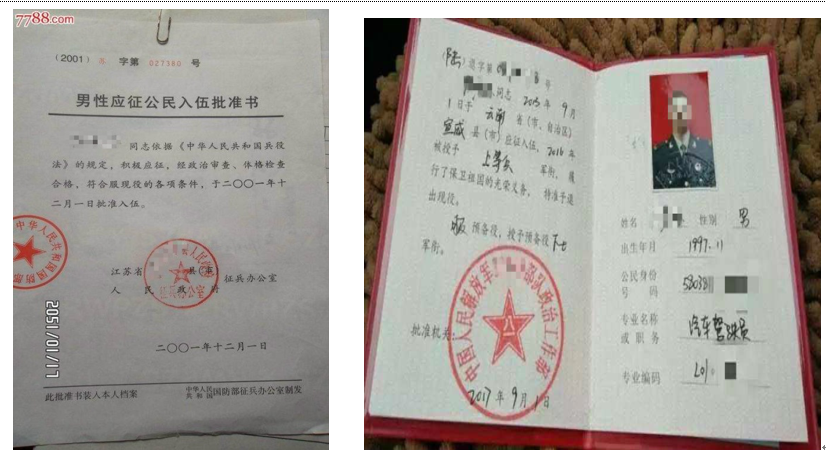 7788.com
(2001) 苏 字第 027380 号
男性应征公民入伍批准书
同志依据《中华人民共和国兵役
法》的规定，积极应征，经政治审查、体格检查
合格，符合服现役的各项条件，于二〇〇一年十
二月一日批准入伍。
中华人民共和国国防部
江苏省 县(市) 征兵办公室
人民政府
征兵办公室
二〇〇一年十二月一日
此批准书装入本人档案
中华人民共和国国防部征兵办公室制发
2051/01/17
(陆) 退字第 号
同志 2015年9月
1日于 云南 省(市、自治区)
宣威 县(市)应征入伍，2016年
被授予 上等兵 军衔，履
行了保卫祖国的光荣义务，特准予退
出现役。
服 预备役，授予预备役 下士
军衔。
批准机关
中国人民解放军 部队政治工作部
2017年9月1日
姓名 性别 男
出生年月 1997.11
公民身份
号码
专业名称 汽车驾驶员
或职务
专业编码 201